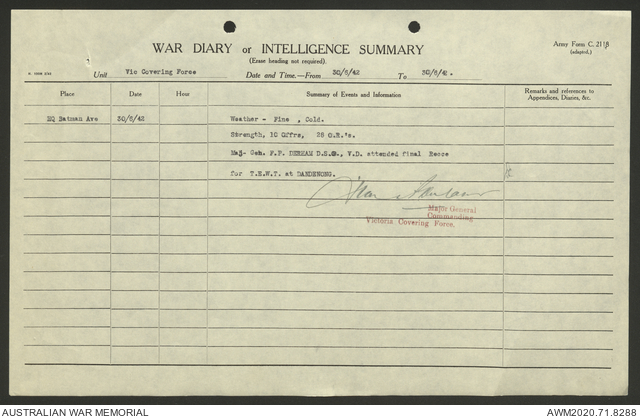 WAR DIARY or INTELLIGENCE SUMMARY
Army Form C. 2118
(adapted.)
(Erase heading not required).
Unit Vic Covering Force Date and Time.—From 30/6/42 To 30/6/42.
Place Date Hour Summary of Events and Information Remarks and references to
Appendices, Diaries, &c.
HQ Batman Ave 30/6/42 Weather - Fine , Cold.
Strength, 10 Offrs, 28 O.R.'s.
Maj- Gen. F.P. DERHAM D.S.O., V.D. attended final Recce
for T.E.W.T. at DANDENONG.
Major General
Commanding
Victoria Covering Force.
AUSTRALIAN WAR MEMORIAL AWM2020.71.8288